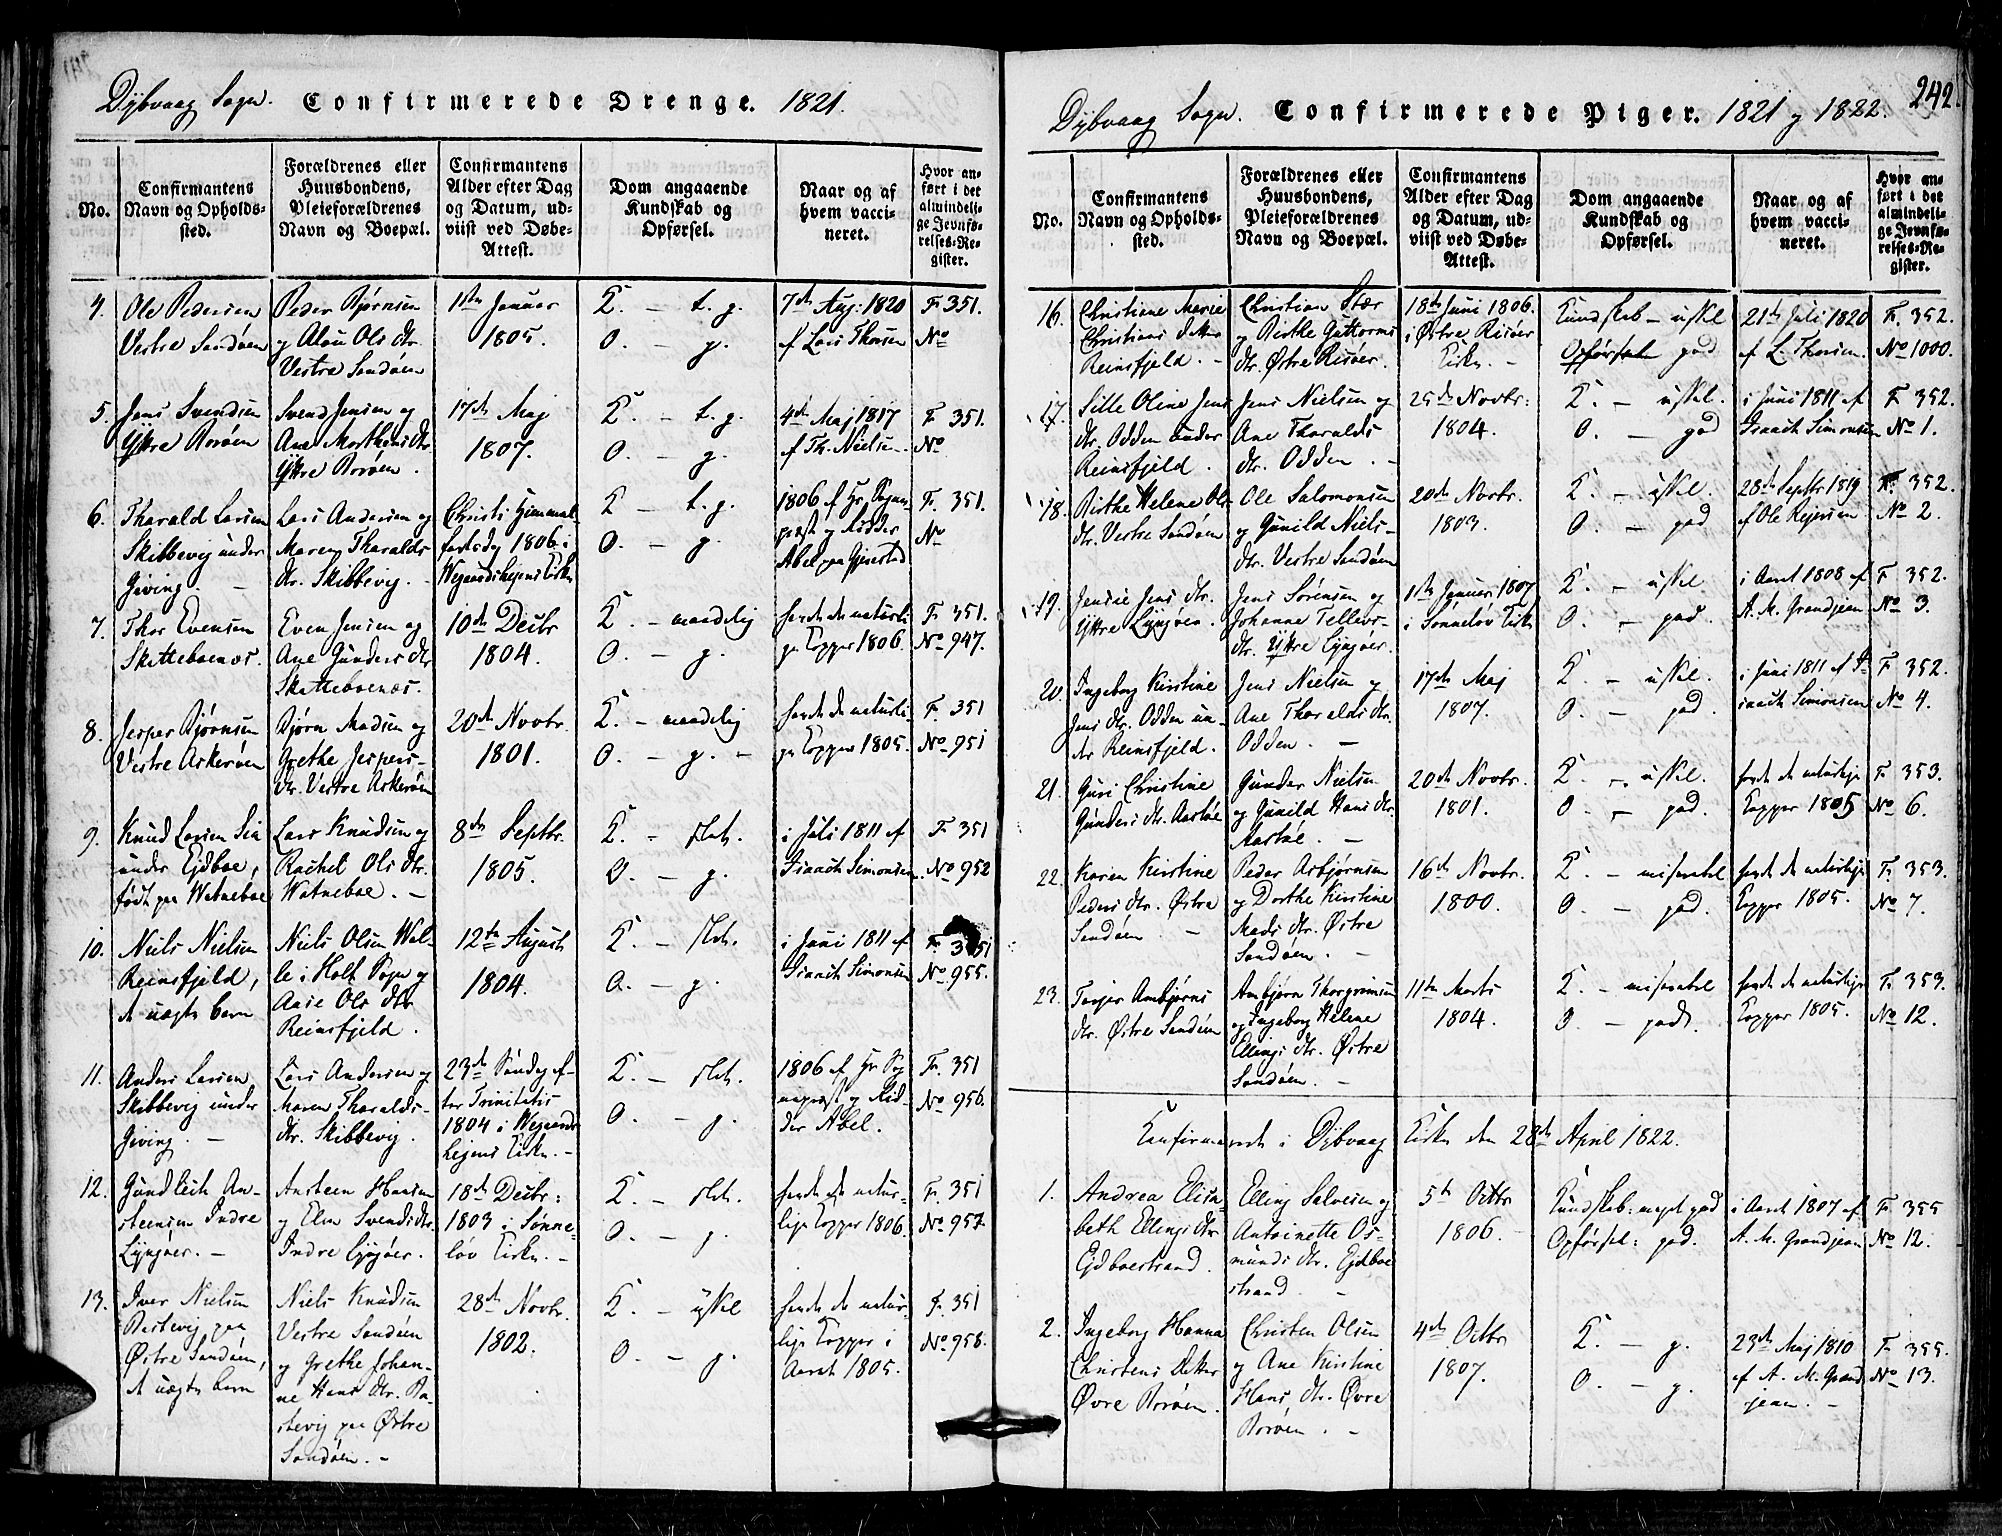 Dybvaag Sogn. Confirmerede Drenge. 1821.
No.
Confirmantens
Navn og Opholds-
sted.
Forældrenes eller
Huusbondens,
Pleieforældrenes
Navn og Boepæl.
Confirmantens
Alder efter Dag
og Datum, ud-
viist ved Døbe-
Attest.
Dom angaaende
Kundskab og
Opførsel.
Naar og af
hvem vacci-
neret.
Hvor an-
ført i det
almindeli-
ge Jevnfø-
relses-Re-
gister.
4.
Ole Pedersen
Vestre Sandøen
Peder Bjørnsen
og Alou Ols dtr.
Vestre Sandøen
11te Januar
1805.
K. — t. g.
O. — g.
7de Aug: 1820
af Lars Thorsen
Fr. 351.
No
5.
Jens Svendsen
Yttre Borøen
Svend Jensen og
Ane Morthens dtr.
Yttre Borøen.
17de Maj
1807.
K. — t. g.
O. — g.
4de Maj 1817
af Th. Nielsen.
Fr. 351.
No
6.
Tharald Larsen
Skibbevig under
Giving. —
Lars Andersen og
Maren Tharalds
dtr. Skibbevig. —
Christi Himmel-
fartsdag 1806 i
Wegaardshejens Kirke
K — t. g.
O. — g.
1806 af Hr. Sogne-
præst og Ridder
Abel paa Gjerestad
Fr. 351.
No
7.
Thor Evensen
Skatteboenæs.
Even Jensen og
Ane Gunders dtr.
Skatteboenæs.
10de Decbr
1804.
K. — maadelig
O. — g.
havde de naturli-
ge Kopper 1806.
Fr. 351.
No 947.
8.
Jesper Bjørnsen
Vestre Askerøen
Bjørn Madsen og
Grethe Jespers-
dtr. Vestre Askerøen
20de Novbr.
1801.
K. — maadelig
O. — g. —
havde de naturli-
ge Kopper 1805.
Fr. 351
No 951
9.
Knud Larsen Lia
under Ejdboe,
født paa Watneboe
Lars Knudsen og
Rachel Ols dtr.
Watneboe. —
8de Septbr.
1805.
K. — slet.
O. — g.
i Juli 1811 af
Isaach Simonsen.
Fr. 351
No 952
10.
Niels Nielsen
Reinsfjeld,
et uægte barn
Niels Olsen Wal-
le i Holt Sogn og
Aase Ols dtr.
Reinsfjeld.
12te August
1804.
K. — slet.
O. — g.
i Juni 1811 af
Isaach Simonsen
Fr. 351
No 955.
11.
Anders Larsen
Skibbevig under
Giving. —
Lars Andersen og
Maren Tharalds-
dtr. Skibbevig.
23de Søndag ef-
ter Trinitatis
1804 i Wegaards-
hejens Kirke. —
K. — slet.
O. — g.
1806 af Hr. Sog-
nepræst og Rid-
der Abel.
Fr. 351
No 956.
12.
Gundleik An-
steensen Indre
Lyngøer. —
Ansteen Hansen
og Elen Svends dtr.
Indre Lyngøer.
18de Decbr:
1803 i Sønne-
løv Kirke. —
K. — slet.
O. — g.
havde de natur-
lige Kopper 1806.
Fr. 351
No 957.
13.
Iver Nielsen
Bastevig paa
Østre Sandøen,
et uægte barn
Niels Knudsen
Vestre Sandøen
og Grethe Johan-
ne Hans dtr. Ba-
stevig paa Østre
Sandøen. —
28de Novbr.
1802.
K. — uskel
O. — g.
havde de natur-
lige Kopper i
Aaret 1805.
Fr. 351
No 958.
Dybvaag Sogn. Confirmerede Piger. 1821 og 1822. 242.
No.
Confirmantens
Navn og Opholds-
sted.
Forældrenes eller
Huusbondens,
Pleieforældrenes
Navn og Boepæl.
Confirmantens
Alder efter Dag
og Datum, ud-
viist ved Døbe-
Attest.
Dom angaaende
Kundskab og
Opførsel.
Naar og af
hvem vacci-
neret.
Hvor an-
ført i det
almindeli-
ge Jevnfø-
relses-Re-
gister.
16.
Christiane Marie
Christians datter
Reinsfjeld. —
Christian Stær
og Birthe Guttorms
dtr. Østre Risøer.
18de Juni 1806.
i Østre Risøer
Kirke. —
Kundskab — uskel
Opførsel god
21de Juli 1820
af L. Thorsen.
Fr. 352.
No 1000.
17.
Sille Oline Jens
dtr. Odden under
Reinsfjeld.
Jens Nielsen og
Ane Tharalds
dtr. Odden. —
25de Novbr:
1804.
K. — uskel.
O. — god
i Juni 1811 af
Isaach Simonsen
Fr. 352.
No 1.
18.
Birthe Helene Ols
dtr. Vestre Sandøen
Ole Salomonsen
og Gunild Niels-
dtr. Vestre Sandøen
20de Novbr.
1803.
K. — uskel.
O. — god
28de Septbr 1819
af Ole Rejersen
Fr. 352.
No 2.
19.
Jensie Jens dtr.
Yttre Lyngøen.
Jens Sørensen og
Johanne Tellevs-
dtr. Yttre Lyngøer.
11te Januar 1807
i Sønneløv Kirke
K. — uskel
O. — god.
i Aaret 1808 af
A. M. Grandjean
Fr. 352.
No 3.
20.
Ingeborg Kirstine
Jens dtr. Odden un-
der Reinsfjeld.
Jens Nielsen og
Ane Tharalds dtr.
Odden. —
17de Maj
1807.
K. — uskel.
O. — god.
i Juni 1811 af I-
saach Simonsen
Fr. 352.
No 4.
21.
Guri Christine
Gunders dtr. Aasbøe
Gunder Nielsen
og Gunild Hans dtr.
Aasbøe. —
20de Novbr.
1801.
K. — uskel.
O. — god.
havde de naturlige
Kopper 1805
Fr. 353.
No 6.
22.
Karen Kirstine
Peders dtr. Østre
Sandøen —
Peder Asbjørnsen
og Dorthe Kirstine
Mads dtr. Østre
Sandøen. —
16de Novbr.
1800.
K. — miserabel
O. — god.
havde de naturlige
Kopper 1805.
Fr. 353.
No 7.
23.
Torjer Anbjørns
dtr. Østre Sandøen
Anbjørn Thorgrimsen
og Ingeborg Helene
Ellings dtr. Østre
Sandøen. —
11te Marts
1804.
K. — miserabel
O. — godt.
havde de naturlige
Kopper 1805.
Fr. 353.
No 12.
Confirmerede i Dybvaag Kirke den 28de April 1822.
1.
Andrea Elisa-
beth Ellings dtr.
Ejdboestrand.
Elling Salvesen og
Antoinette Os-
munds dtr. Ejdboe
strand. —
5te Octbr
1806.
Kundskab: meget god
Opførsel: god.
i Aaret 1807 af
A. M. Grandjean
Fr. 355
No 12.
2.
Ingeborg Hanna
Christens datter
Øvre Borøen.
Christen Olsen
og Ane Kirstine
Hans dtr. Øvre
Borøen. —
4de Octbr
1807.
K. — g.
O. — g.
23de Maj 1810
af A. M. Grand
jean. —
Fr. 355.
No 13.